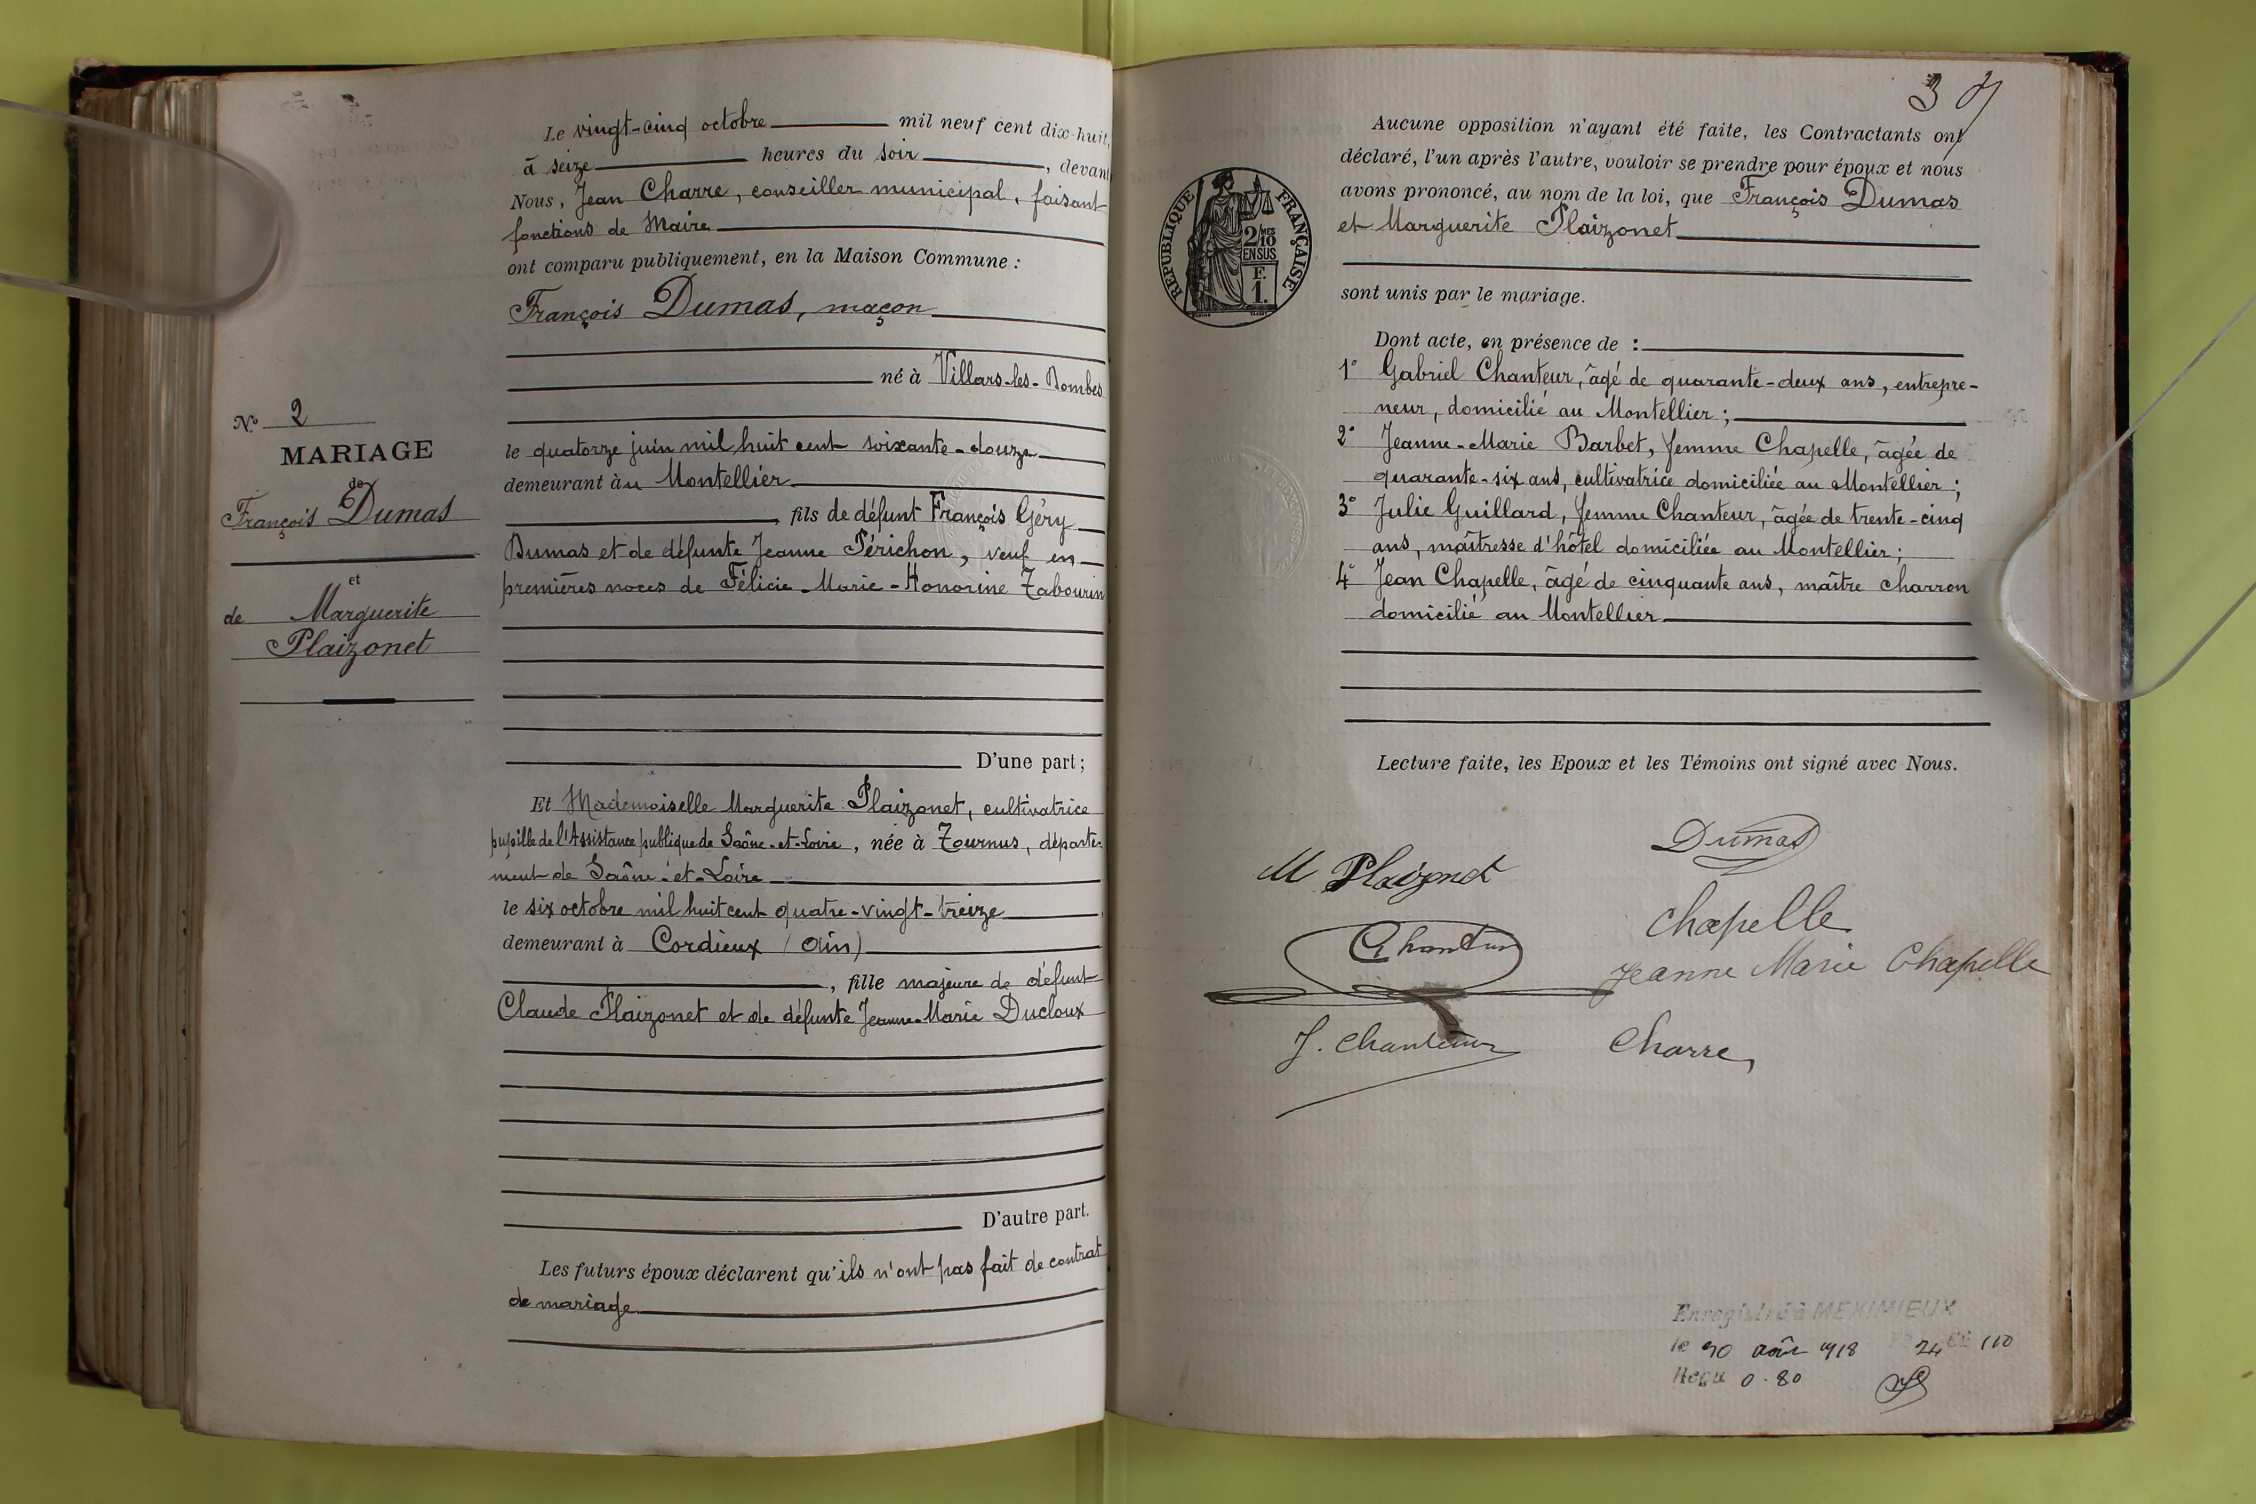 Le vingt-cinq octobre mil neuf cent dix-huit,
à seize heures du soir, devant
Nous, Jean Charre, conseiller municipal, faisant
fonctions de Maire
ont comparu publiquement, en la Maison Commune :
François Dumas, maçon
né à Villars-les-Dombes
le quatorze juin mil huit cent soixante-douze
demeurant àu Montellier
, fils de défunt François Géry
Dumas et de défunte Jeanne Périchon, veuf en
premières noces de Félicie-Marie-Honorine Tabourin
D'une part ;
N° 2
MARIAGE
de
François Dumas
et
de Marguerite
Plaizonet
Et Mademoiselle Marguerite Plaizonet, cultivatrice
pupille de l'Assistance publique de Saône-et-Loire, née à Tournus, départe-
ment de Saône-et-Loire
le six octobre mil huit cent quatre-vingt-treize
demeurant à Cordieux (Ain)
, fille majeure de défunt
Claude Plaizonet et de défunte Jeanne-Marie Ducloux
D'autre part.
Les futurs époux déclarent qu'ils n'ont pas fait de contrat
de mariage
3
Aucune opposition n'ayant été faite, les Contractants ont
déclaré, l'un après l'autre, vouloir se prendre pour époux et nous
avons prononcé, au nom de la loi, que François Dumas
et Marguerite Plaizonet
sont unis par le mariage.
RÉPUBLIQUE FRANÇAISE
2/10 MES
EN SUS
F.
1.
Dont acte, en présence de :
1° Gabriel Chanteur, âgé de quarante-deux ans, entrepre-
neur, domicilié au Montellier ;
2° Jeanne-Marie Barbet, femme Chapelle, âgée de
quarante-six ans, cultivatrice domiciliée au Montellier ;
3° Julie Guillard, femme Chanteur, âgée de trente-cinq
ans, maîtresse d'hôtel domiciliée au Montellier ;
4° Jean Chapelle, âgé de cinquante ans, maître charron
domicilié au Montellier
Lecture faite, les Epoux et les Témoins ont signé avec Nous.
Dumas
M Plaizonet
Chapelle
Chanteur
Jeanne Marie Chapelle
J. Chanteur
Charre
Enregistré à MEXIMIEUX
le 30 1918 24 110
Reçu 0.80